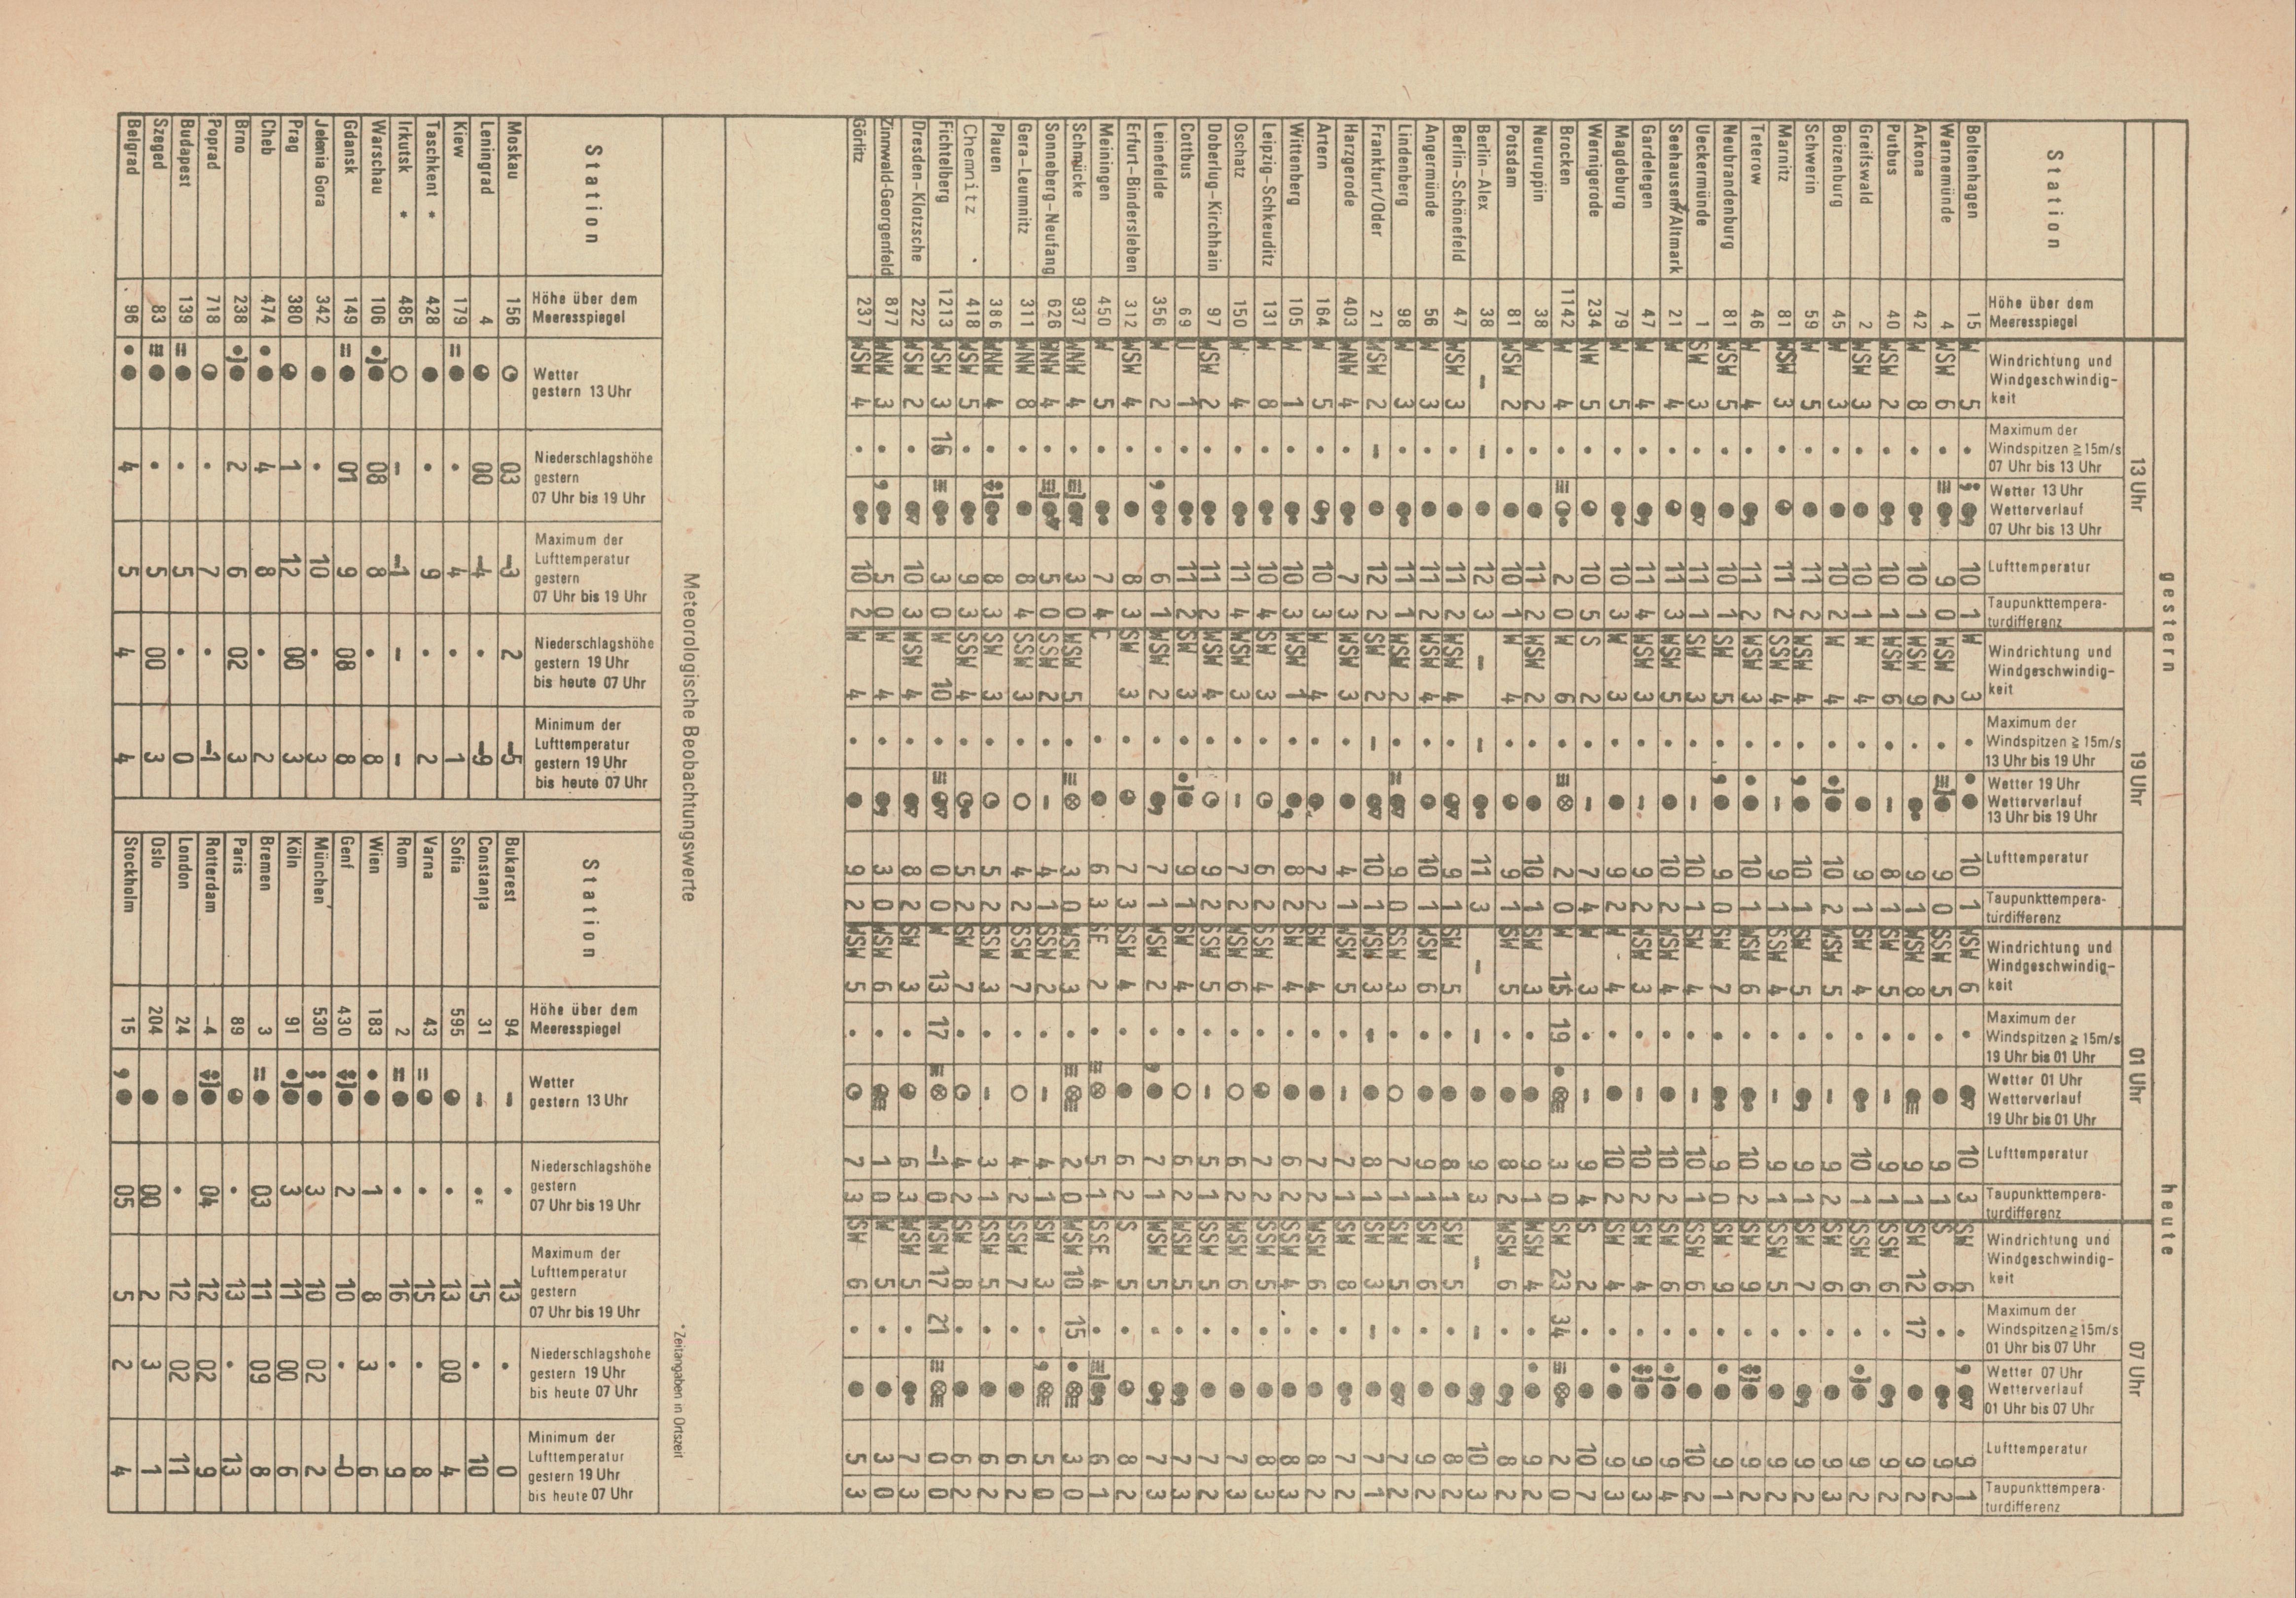 gestern heute
13 Uhr 19 Uhr 01 Uhr 07 Uhr
Station
Höhe über dem
Meeresspiegel
Windrichtung und
Windgeschwindig-
keit
Maximum der
Windspitzen ≧ 15m/s
07 Uhr bis 13 Uhr
Wetter 13 Uhr
Wetterverlauf
07 Uhr bis 13 Uhr
Lufttemperatur
Taupunkttempera-
turdifferenz
Windrichtung und
Windgeschwindig-
keit
Maximum der
Windspitzen ≧ 15m/s
13 Uhr bis 19 Uhr
Wetter 19 Uhr
Wetterverlauf
13 Uhr bis 19 Uhr
Lufttemperatur
Taupunkttempera-
turdifferenz
Windrichtung und
Windgeschwindig-
keit
Maximum der
Windspitzen ≧ 15m/s
19 Uhr bis 01 Uhr
Wetter 01 Uhr
Wetterverlauf
19 Uhr bis 01 Uhr
Lufttemperatur
Taupunkttempera-
turdifferenz
Windrichtung und
Windgeschwindig-
keit
Maximum der
Windspitzen ≧ 15m/s
01 Uhr bis 07 Uhr
Wetter 07 Uhr
Wetterverlauf
01 Uhr bis 07 Uhr
Lufttemperatur
Taupunkttempera-
turdifferenz
Boltenhagen 15 W 5 • 10 1 W 3 • 10 1 WSW 6 • 10 3 SW 6 • 9 1
Warnemünde 4 WSW 6 • 9 0 WSW 2 • 9 0 SSW 5 • 9 1 S 6 • 9 2
Arkona 42 W 8 • 10 1 WSW 9 • 9 1 WSW 8 • 9 1 SW 12 17 9 2
Putbus 40 WSW 2 • 10 1 WSW 6 • 8 1 SW 5 • 9 1 SSW 6 • 9 2
Greifswald 2 WSW 3 • 10 1 W 4 • 9 1 SW 4 • 10 1 SSW 6 • 9 2
Boizenburg 45 W 3 • 10 2 W 4 • 10 2 WSW 5 • 9 2 SW 6 • 9 3
Schwerin 59 W 5 • 11 2 WSW 4 • 10 1 SW 5 • 9 1 SW 7 • 9 2
Marnitz 81 WSW 3 • 11 2 SSW 4 • 9 1 SSW 4 • 9 1 SSW 5 • 9 2
Teterow 46 W 4 • 11 2 WSW 3 • 10 1 WSW 6 • 10 2 SW 9 • 9 2
Neubrandenburg 81 WSW 5 • 10 1 SW 5 • 9 0 SW 7 • 9 0 SW 9 • 9 1
Ueckermünde 1 SW 3 • 11 1 SW 3 • 10 1 SW 4 • 10 1 SSW 6 • 10 2
Seehausen/Altmark 21 W 4 • 11 3 WSW 5 • 10 2 SSW 4 • 10 2 SW 6 • 9 4
Gardelegen 47 W 4 • 11 4 WSW 3 • 9 2 WSW 3 • 10 2 SW 4 • 9 3
Magdeburg 79 W 5 • 10 3 W 3 • 9 2 W 4 • 10 2 SW 4 • 9 3
Wernigerode 234 NW 5 • 10 5 S 2 • 7 4 W 3 • 9 4 S 2 • 10 7
Brocken 1142 W 4 • 2 0 W 6 • 2 0 W 15 19 3 0 SW 23 34 2 0
Neuruppin 38 W 2 • 11 2 WSW 2 • 10 1 SW 3 • 9 1 WSW 4 • 9 2
Potsdam 81 WSW 2 • 10 1 W 4 • 9 1 SW 5 • 8 2 WSW 6 • 8 2
Berlin-Alex 38 – – 12 3 – – 11 3 – – 9 3 – – 10 3
Berlin-Schönefeld 47 WSW 3 • 11 2 WSW 4 • 9 1 SW 5 • 8 1 SW 5 • 8 2
Angermünde 56 W 3 • 11 2 WSW 4 • 10 1 WSW 6 • 9 1 SSW 6 • 9 2
Lindenberg 98 W 3 • 11 1 WSW 2 • 9 0 SSW 3 • 7 1 SSW 5 • 7 2
Frankfurt/Oder 21 WSW 2 – 12 2 SW 2 – 10 1 WSW 3 – 8 1 SSW 3 – 7 1
Harzgerode 403 WNW 4 • 7 3 W 3 • 4 1 WSW 5 • 7 1 SW 8 • 7 2
Artern 164 W 5 • 10 3 W 4 • 7 2 W 4 • 7 2 SW 6 • 8 2
Wittenberg 105 W 1 • 10 3 WSW 1 • 8 2 SW 4 • 6 2 SSW 4 • 8 3
Leipzig-Schkeuditz 131 W 8 • 10 4 SW 3 • 6 2 SSW 4 • 7 2 SSW 5 • 8 3
Oschatz 150 W 4 • 11 4 WSW 3 • 7 2 WSW 6 • 6 2 SSW 6 • 7 3
Doberlug-Kirchhain 97 WSW 2 • 11 2 WSW 4 • 9 2 SSW 5 • 5 1 SSW 5 • 7 2
Cottbus 69 U 1 • 11 2 SW 3 • 9 1 SW 4 • 6 2 WSW 5 • 7 3
Leinefelde 356 W 2 • 6 1 WSW 2 • 7 1 WSW 2 • 7 1 WSW 5 • 7 3
Erfurt-Bindersleben 312 WSW 4 • 8 3 SW 3 • 7 3 SSW 4 • 6 2 S 5 • 8 2
Meiningen 450 W 5 • 7 4 C • 6 3 SE 2 • 5 1 SSE 4 • 6 1
Schmücke 937 WNW 4 • 3 0 WSW 5 • 3 0 WSW 3 • 2 0 WSW 10 15 3 0
Sonneberg-Neufang 626 WNW 4 • 5 0 SSW 2 • 4 1 SSW 2 • 4 1 SW 3 • 5 0
Gera-Leumnitz 311 WNW 8 • 8 4 SSW 3 • 4 2 SSW 7 • 4 2 SSW 7 • 6 2
Plauen 386 WNW 4 • 8 3 SW 3 • 5 2 SSW 3 • 3 1 SSW 5 • 6 2
Chemnitz 418 WSW 5 • 9 3 SSW 4 • 5 2 SW 7 • 4 2 SW 8 • 6 2
Fichtelberg 1213 WSW 3 16 3 0 W 10 • 0 0 W 13 17 -1 0 WSW 17 21 0 0
Dresden-Klotzsche 222 WSW 2 • 10 3 WSW 4 • 8 2 SW 3 • 6 3 WSW 5 • 7 3
Zinnwald-Georgenfeld 877 WNW 3 • 5 0 W 4 • 3 0 WSW 6 • 1 0 W 5 • 3 0
Görlitz 237 WSW 4 • 10 2 W 4 • 9 2 WSW 5 • 7 3 SW 6 • 5 3
Meteorologische Beobachtungswerte
*Zeitangaben in Ortszeit
Station
Höhe über dem
Meeresspiegel
Wetter
gestern 13 Uhr
Niederschlagshöhe
gestern
07 Uhr bis 19 Uhr
Maximum der
Lufttemperatur
gestern
07 Uhr bis 19 Uhr
Niederschlagshöhe
gestern 19 Uhr
bis heute 07 Uhr
Minimum der
Lufttemperatur
gestern 19 Uhr
bis heute 07 Uhr
Moskau 156 03 -3 2 -5
Leningrad 4 00 -4 • -9
Kiew 179 • 4 • 1
Taschkent * 428 • 9 • 2
Irkutsk * 485 – -1 – –
Warschau 106 08 8 • 8
Gdansk 149 01 9 08 8
Jelenia Gora 342 • 10 • 3
Prag 380 1 12 00 3
Cheb 474 4 8 • 2
Brno 238 2 6 02 3
Poprad 718 • 7 • -1
Budapest 139 • 5 • 0
Szeged 83 • 5 00 3
Belgrad 96 4 5 4 4
Station
Höhe über dem
Meeresspiegel
Wetter
gestern 13 Uhr
Niederschlagshöhe
gestern
07 Uhr bis 19 Uhr
Maximum der
Lufttemperatur
gestern
07 Uhr bis 19 Uhr
Niederschlagshöhe
gestern 19 Uhr
bis heute 07 Uhr
Minimum der
Lufttemperatur
gestern 19 Uhr
bis heute 07 Uhr
Bukarest 94 – • 13 • 0
Constanţa 31 – • 15 • 10
Sofia 595 • 13 00 4
Varna 43 • 15 • 8
Rom 2 • 16 • 9
Wien 183 1 8 3 6
Genf 430 2 10 • -0
München 530 3 10 02 2
Köln 91 3 11 00 6
Bremen 3 03 11 09 8
Paris 89 • 13 • 13
Rotterdam -4 04 12 02 9
London 24 • 12 02 11
Oslo 204 00 2 3 1
Stockholm 15 05 5 2 4